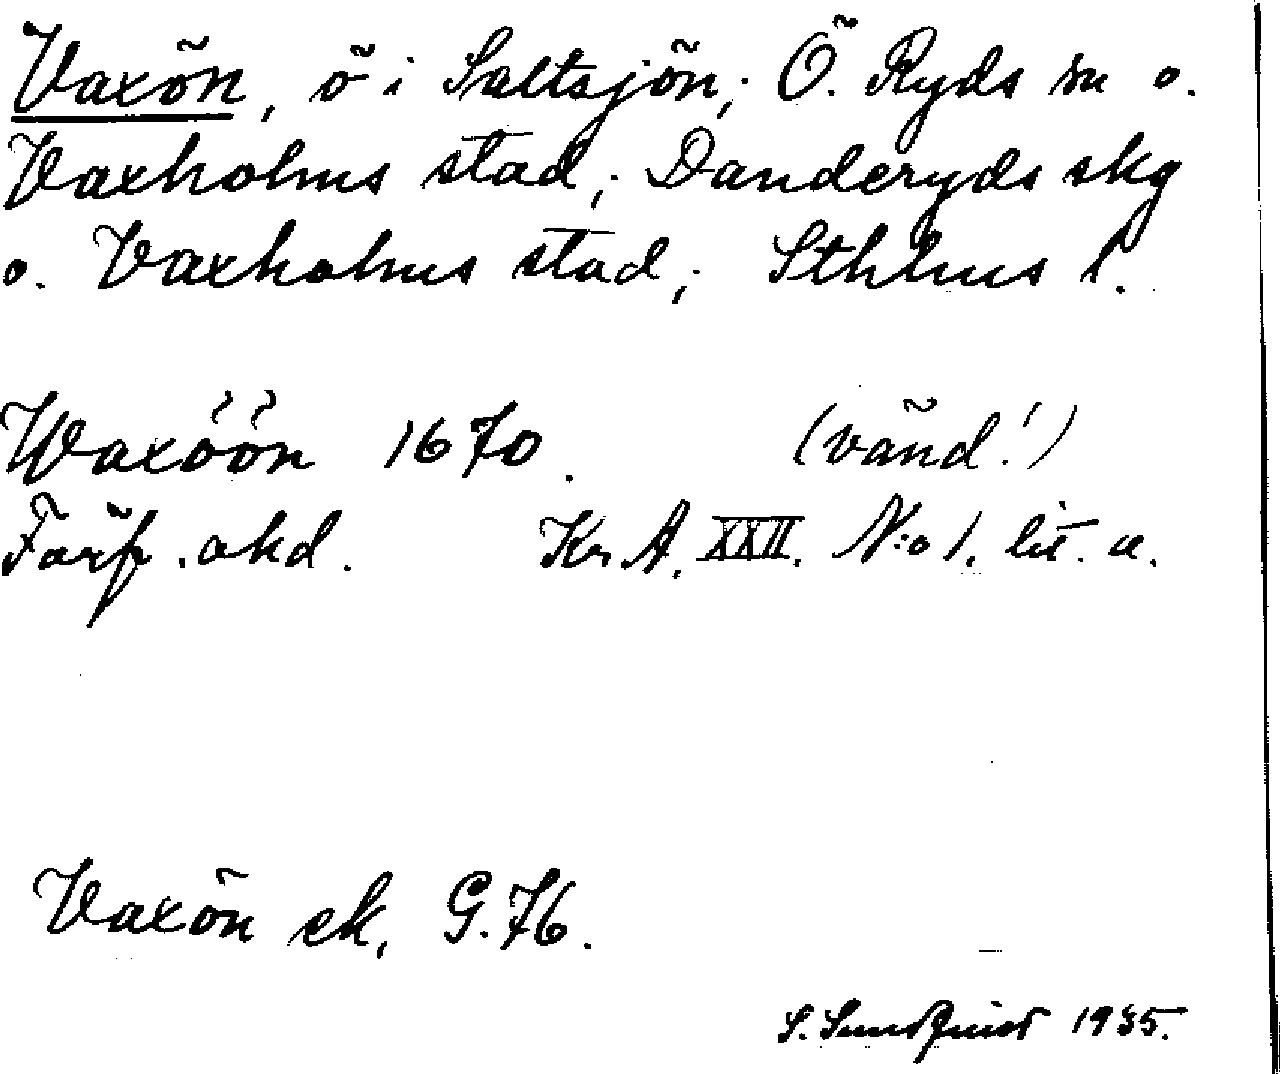 Vaxön, ö i Saltsjön; Ö. Ryds sn o.
Vaxholms stad; Danderyds skg
o. Vaxholms stad; Sthlms l.
Waxöön 1670. (vänd!)
Förf. akd. Kr. A. XXII. N:o 1. lit. a.
Vaxön ek. G. 76.
S. Sundquist 1935.